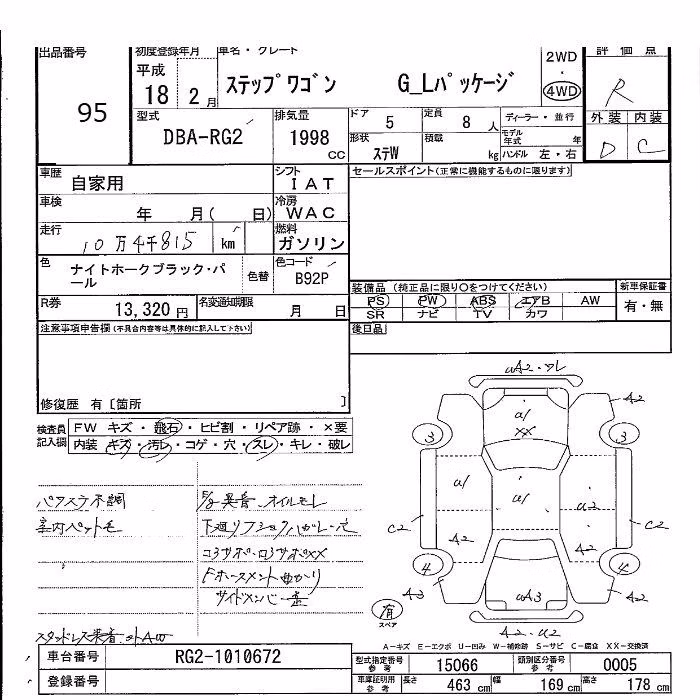 出品番号 初度登録年月 車名・グレード 2WD ・ 4WD 評価点
95 平成 18 2月 ステップワゴン G_Lパッケージ R
型式 排気量 ドア 5 定員 8 人 ディーラー・並行 外装 内装
DBA-RG2 1998 CC 形状 ステW 積載 kg モデル年式 年 D C
ハンドル 左・右
車歴 自家用 シフト IAT セールスポイント(正常に機能するものに限ります)
車検 年 月( 日) 冷房 WAC
走行 10万4千815 km 燃料 ガソリン
色 ナイトホークブラック・パール 色替 色コード B92P
装備品 (純正品に限り○をつけてください) 新車保証書
R券 13,320円 名変通知期限 月 日 PS PW ABS エアB AW 有・無
SR ナビ TV カワ
注意事項申告欄(不具合内容等は具体的に記入して下さい) 後日品
修復歴 有 [箇所 ]
検査員記入欄 FW キズ・飛石・ヒビ割・リペア跡・×要
内装 キズ・汚レ・コゲ・穴・スレ・キレ・破レ
パワステ不調
室内ペット毛
異音 オイルモレ
コアサポ・ロアサポXX
曲がり
サイドメンバー
A2
A1
XX
3 3
A1 A1 A2
C2 C2
A2 A2
4 4
A3 A2
UA3
有
スペア
A2・U2
A-キズ E-エクボ U-凹み W-補修跡 S-サビ C-腐食 XX-交換済
車台番号 RG2-1010672 型式指定番号 参考 15066 類別区分番号 参考 0005
登録番号 車庫証明用 参考 長さ 463 cm 幅 169 cm 高さ 178 cm